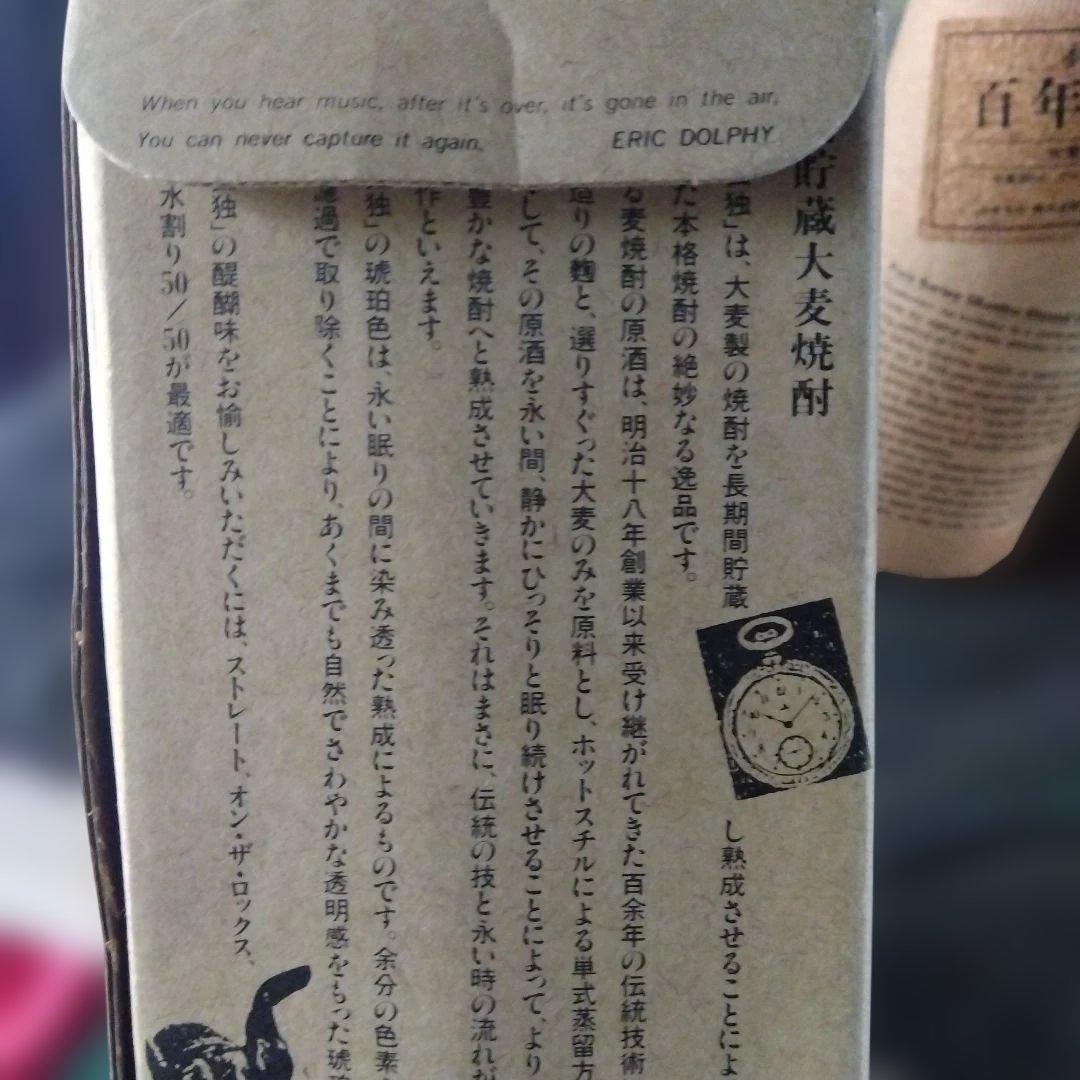 When you hear music, after it's over, it's gone in the air,
You can never capture it again. ERIC DOLPHY
貯蔵大麦焼酎
独」は、大麦製の焼酎を長期間貯蔵し熟成させることによ
た本格焼酎の絶妙なる逸品です。
る麦焼酎の原酒は、明治十八年創業以来受け継がれてきた百余年の伝統技術
造りの麹と、選りすぐった大麦のみを原料とし、ホットスチルによる単式蒸留方
して、その原酒を永い間、静かにひっそりと眠り続けさせることによって、より
豊かな焼酎へと熟成させていきます。それはまさに、伝統の技と永い時の流れが
作といえます。
独」の琥珀色は、永い眠りの間に染み透った熟成によるものです。余分の色素
濾過で取り除くことにより、あくまでも自然でさわやかな透明感をもった琥珀
独」の醍醐味をお愉しみいただくには、ストレート、オン・ザ・ロックス、
水割り50/50が最適です。
百年